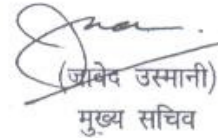 (जावेद उस्मानी)
मुख्य सचिव